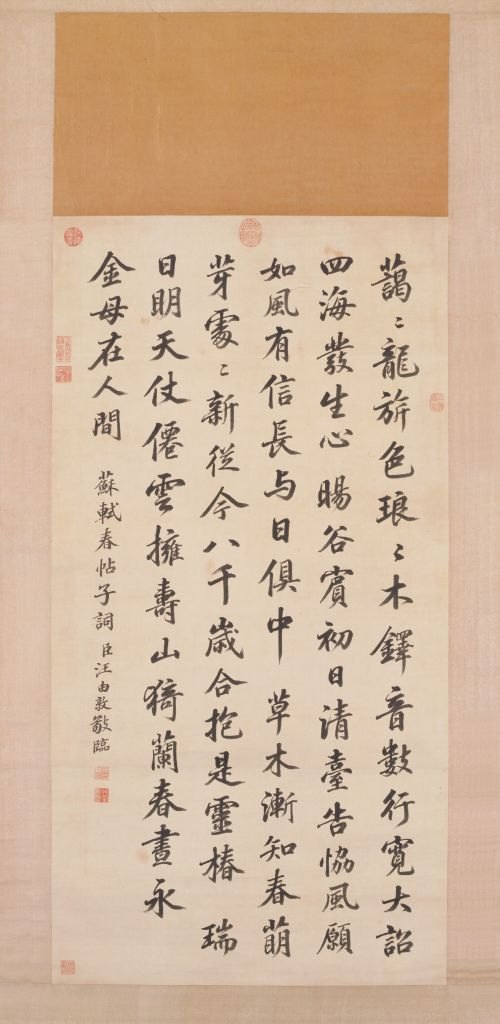 藹〻龍旂色琅〻木鐸音數行寛大詔
四海發生心暘谷賓初日清臺告恊風願
如風有信長与日俱中草木漸知春萠
芽處〻新從今八千歳合抱是靈椿瑞
日明天仗僊雲擁壽山猗蘭春晝永
金母在人間
蘇軾春帖子詞臣汪由敦敬臨